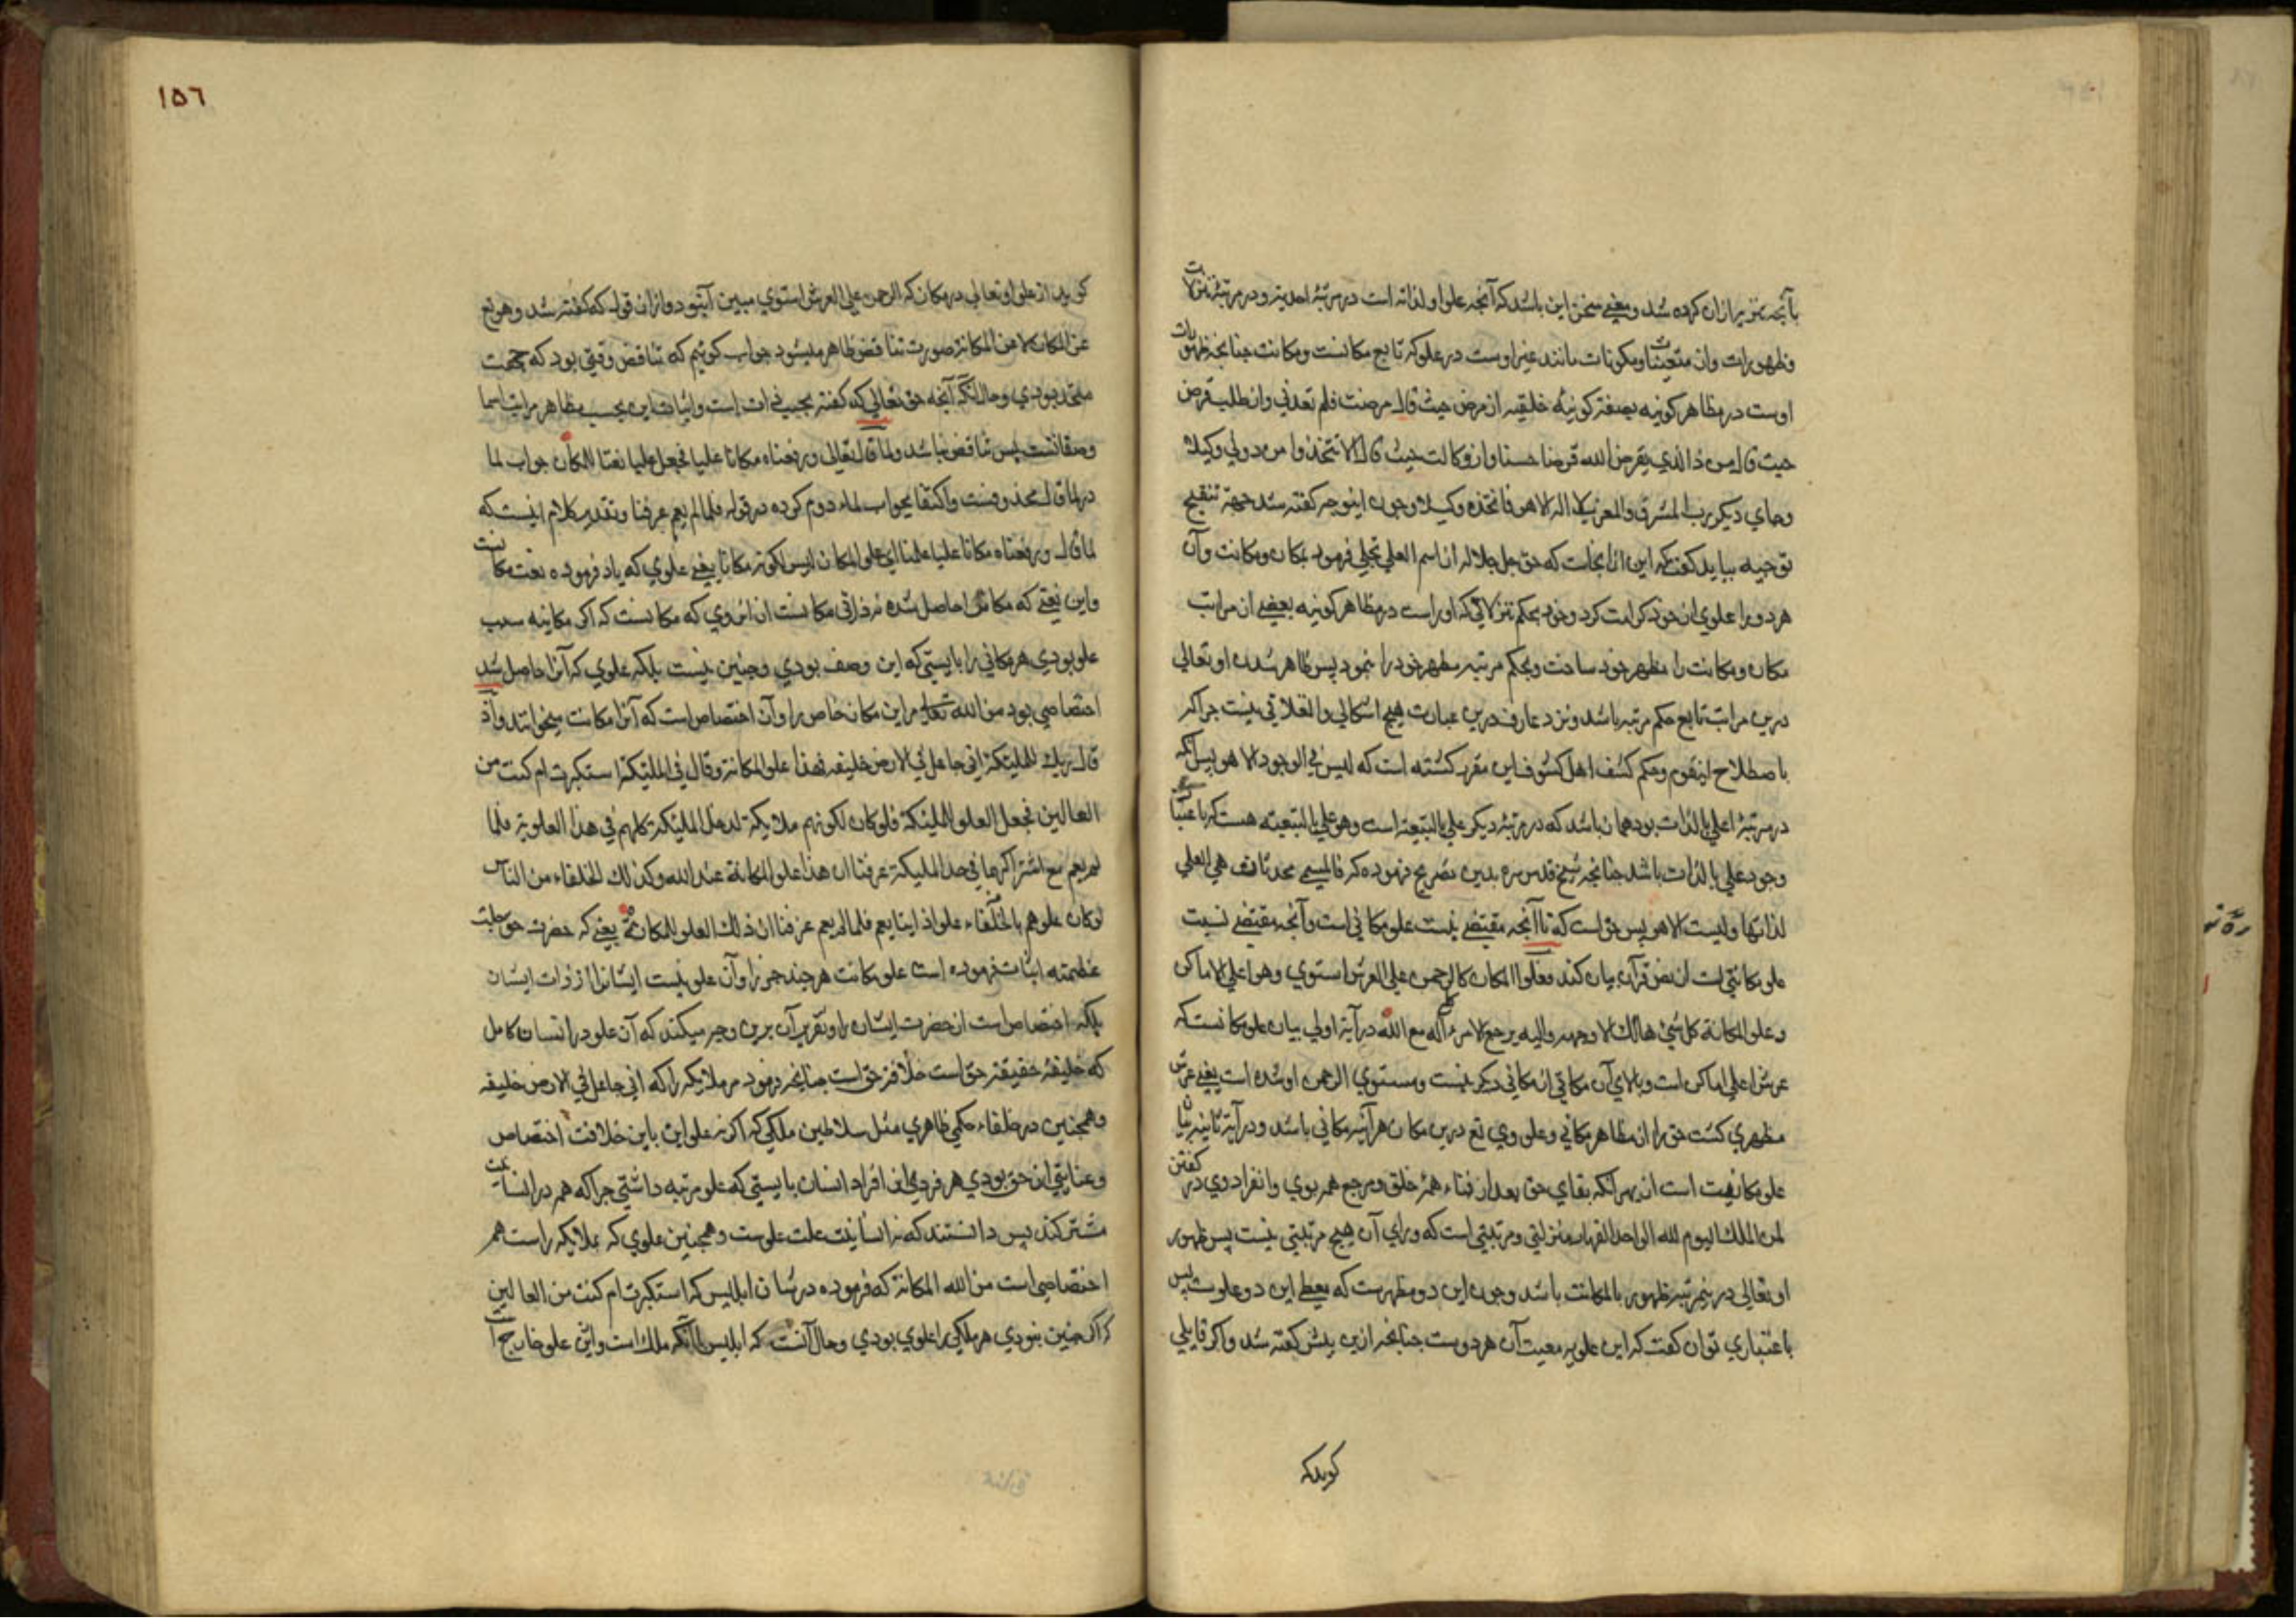 بآنچه تنزیر ازان کرده شد و یعنی سخن این باشد که آنچه علو او لذاته است در مرتبهٔ احدیة و در مرتبهٔ تنزلات
وظهورات وان متعینات ومکونات مانند غیر اوست در علو که تابع مکانست ومکانت جنانچه ظهورات
اوست در مظاهر کونیه بصفة کونیهٔ خلقیه از مرض حیث قال مرضت فلم تعدنی واز طلب قرض
حیث قال من ذا الذی یقرض الله قرضا حسنا واز وکالت حیث قال الا تتخذوا من دونی وکیلا
وجای دیکر رب المشرق والمغرب لا اله الا هو فاتخذه وکیلا وجون اینوجه کفته شد جهة تنقیح
توجیه بباید کفت که این ازانجاست که حق جل جلاله از اسم العلی تجلی فرمود بمکان ومکانت وآن
هر دو را علوی از خود کرامت کرد وخود بحکم تنزلاتی که اوراست در مظاهر کونیه بعضی از مراتب
مکان ومکانت را مظهر خود ساخت وبحکم مرتبه مظهر خود را نمود پس ظاهر شدن او تعالی
درین مراتب تابع حکم مرتبه باشد ونزد عارف درین عبارت هیچ اشکالی وانغلاقی نیست جراکه
باصطلاح اینقوم وحکم کشف اهل کشوف این مقرر کشته است که لیس فی الوجود الا هو پس آنکه
در مرتبهٔ اعلی بالذات بود همان باشد که در مرتبهٔ دیکر علی بالتبعیة است وهو علی بالتبعیة هست که باعتبار
وجود علی بالذات باشد جنانچه شیخ قدس سره بدین تصریح فرموده که فالمسمی محدثات هی العلی
لذاتها ولیست الا هو پس حق است که تا آنچه مقتضی نیست علو مکانی است وآنچه مقتضی نسبت
علو مکانتی است از نص قرآن بیان کند فعلو المکان کالرحمن علی العرش استوی وهو اعلی الاماکن
وعلو المکانة کل شیء هالک الا وجهه والیه یرجع الامر کله ءاله مع الله در آیة اولی بیان علو مکانست که
عرش اعلی اماکن است وبالای آن مکانی از مکانی دیکر نیست ومستوی الرحمن او شده است یعنی عرش
مظهری کشت حق را از مظاهر مکانی وعلو وی تع درین مکان هرآینه مکانی باشد ودر آیة ثانیه بیان
علو مکانیت است از بهر آنکه بقای حق بعد از فناء همهٔ خلق ومرجع همه بوی وانفراد وی در کفتن
لمن الملک الیوم لله الواحد القهار منزلتی ومرتبتی است که ورای آن هیچ مرتبتی نیست پس ظهور
او تعالی در ینمرتبه ظهور بالمکانت باشد وجون این دو مظهرست که یعطی این دو علوست پس
باعتباری توان کفت که این علو بر معیت آن هر دوست جنانچه ازین پیش کفته شد واکر قایلی
کویدکه
١٥٦
کوید از علو او تعالی در مکان که الرحمن علی العرش استوی مبین آنبود وازان قول که کفته شد وهو تع
عن المکان لا عن المکانة صورت تناقض ظاهر میشود جواب کوئیم که تناقض وقتی بود که جهت
متحد بودی وحال آنکه آنچه حق تعالی که کفته بحسب ذات است واثبات این بحسب مظاهر مراتب اسما
وصفاتست پس تناقض نباشد ولما قال تعالی ورفعناه مکانا علیا فجعل علیا نعتا للمکان جواب لما
در لما قال محذوفست واکتفا بجواب لماء دوم کرده در قوله فلما لم یعم عرفنا وتقدیر کلام اینست که
لما قال ورفعناه مکانا علیا علمنا ان علو المکان لیس لکونه مکانا یعنی علوی که یاد فرموده نعت مکانست
واین نعتی که مکانرا حاصل شده نه ذاتی مکانست ازانروی که مکانست که اکر مکانیه سبب
علو بودی هر مکانی را بایستی که این وصف بودی وجنین نیست بلکه علوی که آنرا حاصل شد
اختصاصی بود من الله تعالی مر این مکان خاص را وآن اختصاص است که آنرا مکانت میخوانند واذ
قال ربک للملیکة انی جاعل فی الارض خلیفه فهذا علو المکانة وقال فی الملیکة استکبرت ام کنت من
العالین فجعل العلو للملیکة فلو کان لکونهم ملایکة لدخل الملیکة کلهم فی هذا العلو فلما
لم یعم مع اشتراکهما فی حد الملیکة عرفنا ان هذا علو المکانة عند الله وکذلک الخلفاء من الناس
لو کان علوهم بالخلفاء علوا ذاتیا یعم فلما لم یعم عرفنا ان ذلک العلو للمکانة یعنی که حضرت حق جلت
عظمته اثبات فرموده است علو مکانت هر جند جیز را وآن علو نیست ایشانرا از ذوات ایشان
بلکه اختصاص است از حضرت ایشان را وتقریر آن برین وجه میکند که آن علو در انسان کامل
که خلیفهٔ حقیقهٔ حق است خلافة حق است جنانچه فرمود مر ملایکه را که انی جاعل فی الارض خلیفه
وهمجنین در خلفاء حکمی ظاهری مثل سلاطین ملکی که اکر نه علو این باین خلافت اختصاص
وعنایتی از حق بودی هر فردی از افراد انسان بایستی که علو مرتبه داشتی جراکه همه در انسانیت
مشترکند پس دانستند که نه انسانیت علت علوست وهمجنین علوی که ملایکه راست هم
اختصاصی است من الله المکانة که فرموده در شان ابلیس که استکبرت ام کنت من العالین
که اکر جنین نبودی هر ملکی را علوی بودی وحال آنست که ابلیس با آنکه ملک است وازین علو خارج